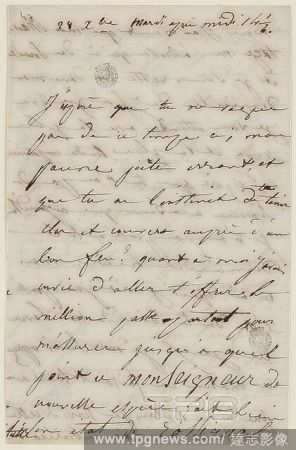 28 Xbre mardi après midi 1h ½
J'espère que tu ne vogues
pas de ce temps ci, mon
pauvre poète errant, et
que tu as l'instinct de te tenir
clos et couvert auprès d'un
bon feu ? quant à moi j'avais
envie d'aller t'offrir le
million passe-partout pour
m'assurer jusqu'à quel
point ce monseigneur de
nouvelle espèce est bien
en état de
www.tpgnews.com/達志影像